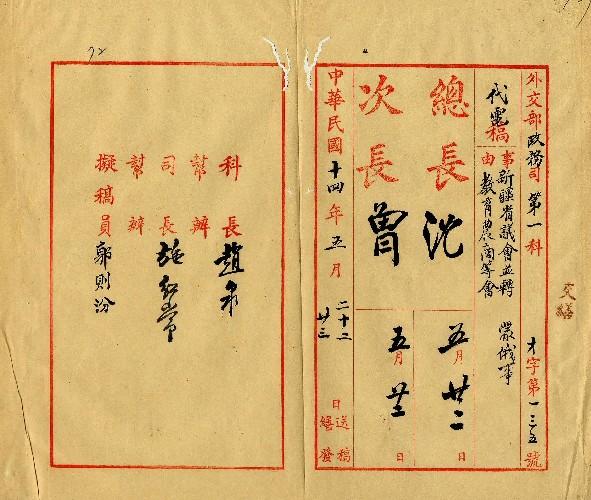 外交部政務司第一科 才字第一三五號
代電稿
事由 新疆省議會並轉教育農商等會 蒙俄事
總長 沈 五月廿二日
次長 曾 五月廿二日
中華民國十四年五月二十二日送稿 廿三日繕發
交繕
科長 趙
幫辦
司長 施紹常
幫辦
擬稿員 郭則汾
92